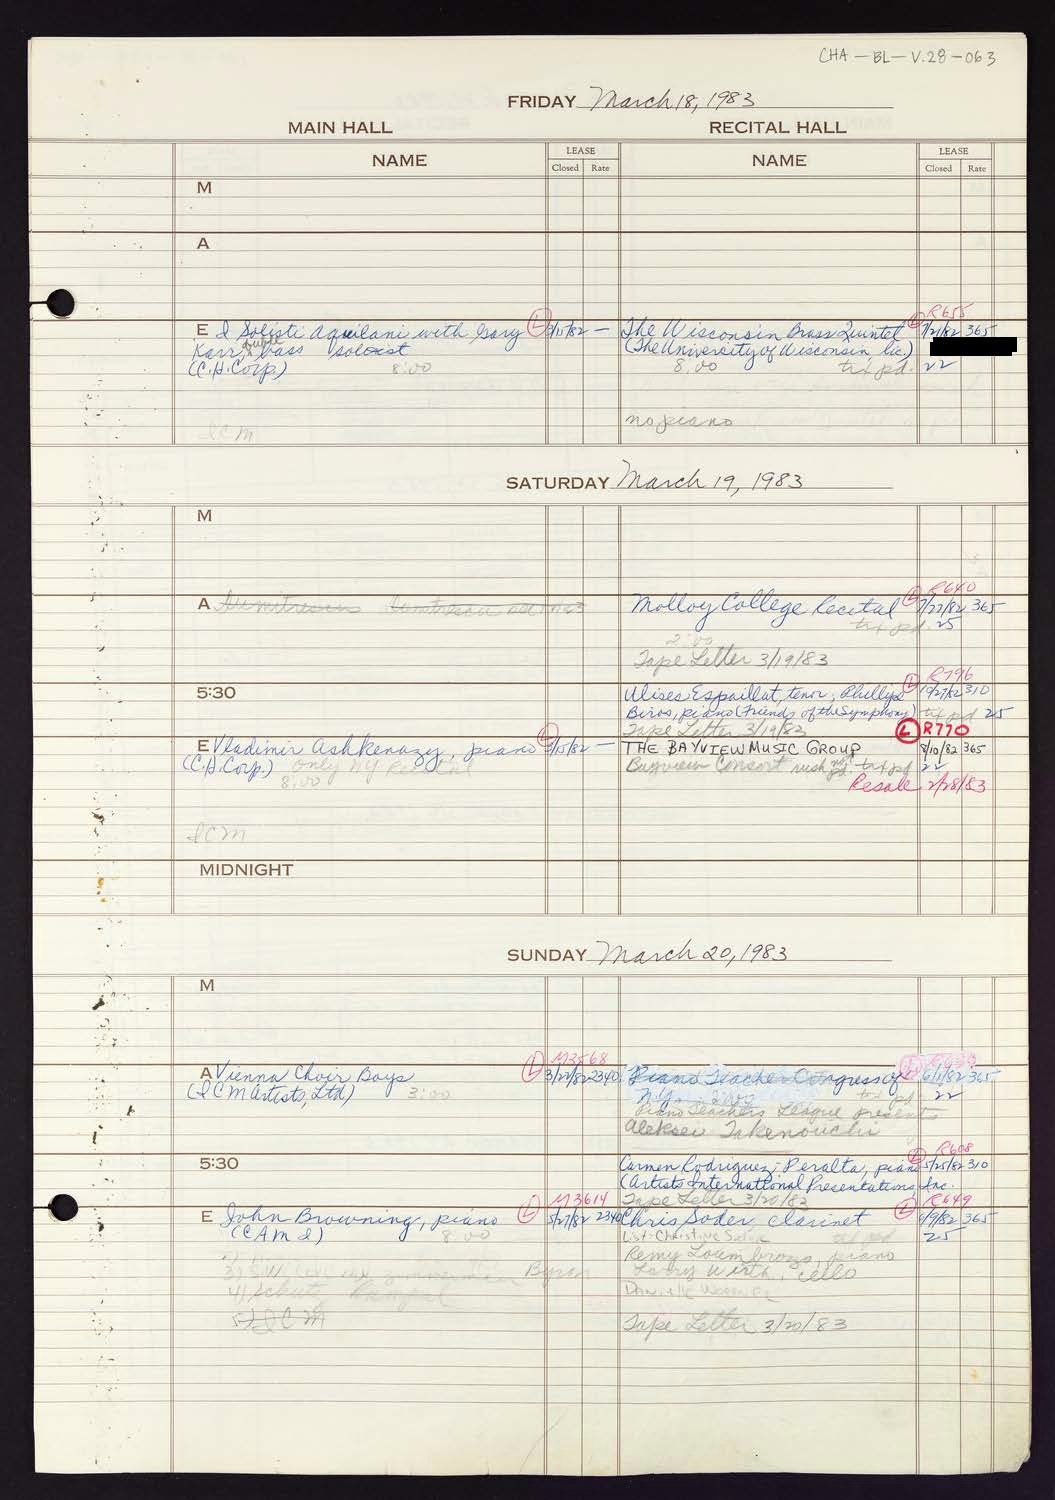 CHA-BL-V.28-063
FRIDAY March 18, 1983
MAIN HALL RECITAL HALL
NAME LEASE Closed Rate NAME LEASE Closed Rate
M
A
R655
E I Solisti Aquilani with Gary (L) /15/82 — The Wisconsin Brass Quintet (L) 7/21/82 365
Karr, double bass soloist (The University of Wisconsin, Inc.)
(C.H.Corp.) 8:00 8:00 trx pd. 22
no piano
ICM
SATURDAY March 19, 1983
M
R640
A Molloy College Recital (L) 7/22/82 365
trx pd. 25
2:00
Tape Letter 3/19/83
R796
5:30 Ulises Espaillat, tenor; Phillips (L) 10/27/82 310
Biros, piano (Friends of the Symphony) trx pd 25
Tape Letter 3/19/83 (L) R770
E Vladimir Ashkenazy, piano (L) /15/82 — THE BAYVIEW MUSIC GROUP 8/10/82 365
(C.H.Corp.) only NY Recital Bayview Consort trx pd 22
8:00 Resale 2/28/83
ICM
MIDNIGHT
SUNDAY March 20, 1983
M
M3568
A Vienna Choir Boys (L) 3/22/82 2340 Piano Teacher Congress of (L) 6/1/82 365
(ICM Artists, Ltd) 3:00 N.Y. trx pd 22
Piano Teachers League presents
Aleksei Takenouchi
R608
5:30 Carmen Rodriguez-Peralta, piano (L) 5/25/82 310
(Artists International Presentations, Inc.
M3614 Tape Letter 3/20/83 R649
E John Browning, piano (L) 5/27/82 2340 Chris Soder, clarinet (L) 6/9/82 365
(CAMI) 8:00 25
Remy piano
Byron Larry Wirth, cello
5) ICM Tape Letter 3/20/83